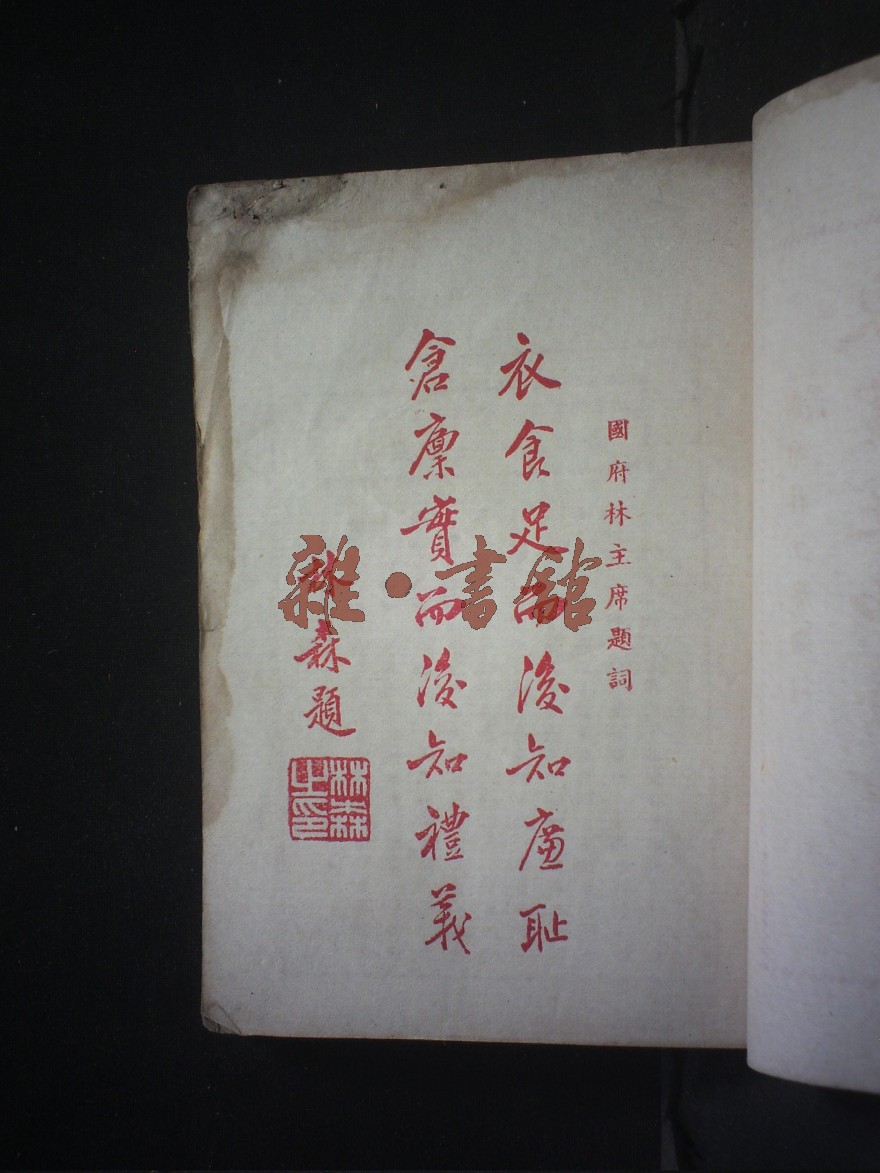 國府林主席題詞
衣食足而後知廉恥
倉廩實而後知禮義
林森題
林森之印
雜·書館